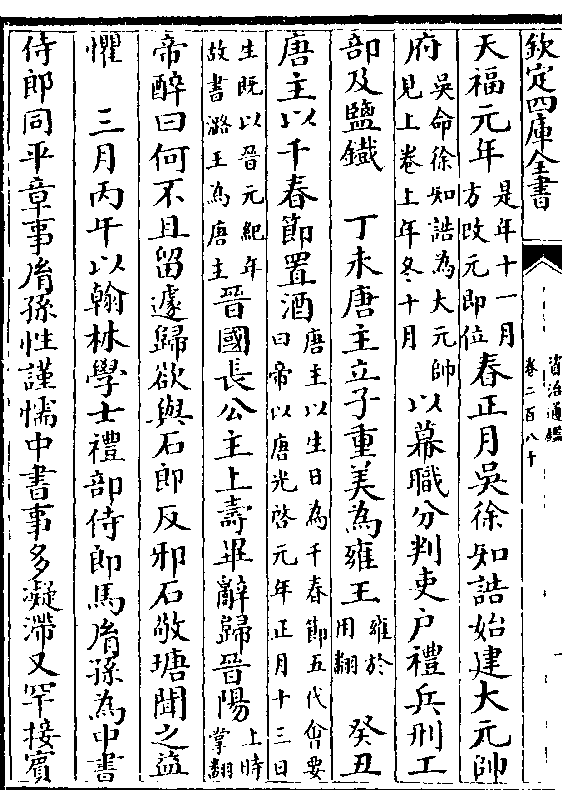 欽定四庫全書
資治通鑑
卷二百八十
天福元年是年十一月方改元即位春正月吳徐知誥始建大元帥
府吳命徐知誥為大元帥見上卷上年冬十月以幕職分判吏户禮兵刑工
部及鹽鐵　丁未唐主立子重美為雍王雍於用翻　癸丑
唐主以千春節置酒唐主以生日為千春節五代㑹要曰帝以唐光啓元年正月十三日
生既以晉元紀年故書潞王為唐主晉國長公主上壽畢辭歸晉陽上時掌翻
帝醉曰何不且留遽歸欲與石郎反邪石敬瑭聞之益
懼　三月丙午以翰林學士禮部侍郎馬胤孫為中書
侍郎同平章事胤孫性謹懦中書事多凝滯又罕接賓